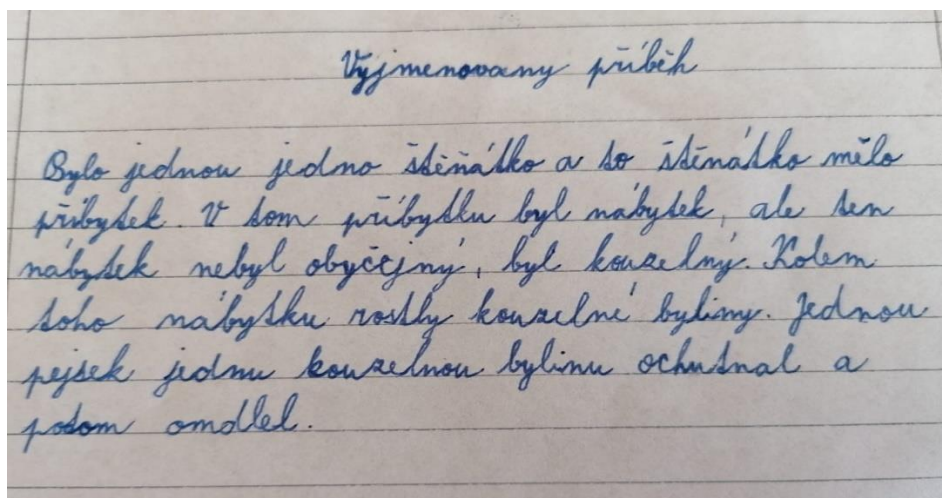 Vyjmenovany příběh
Bylo jednou jedno štěňátko a to štěnátko mělo
příbytek. V tom příbytku byl nábytek, ale ten
nábytek nebyl obyčejný, byl kouzelný. Kolem
toho nábytku rostly kouzelné byliny. Jednou
pejsek jednu kouzelnou bylinu ochutnal a
potom omdlel.